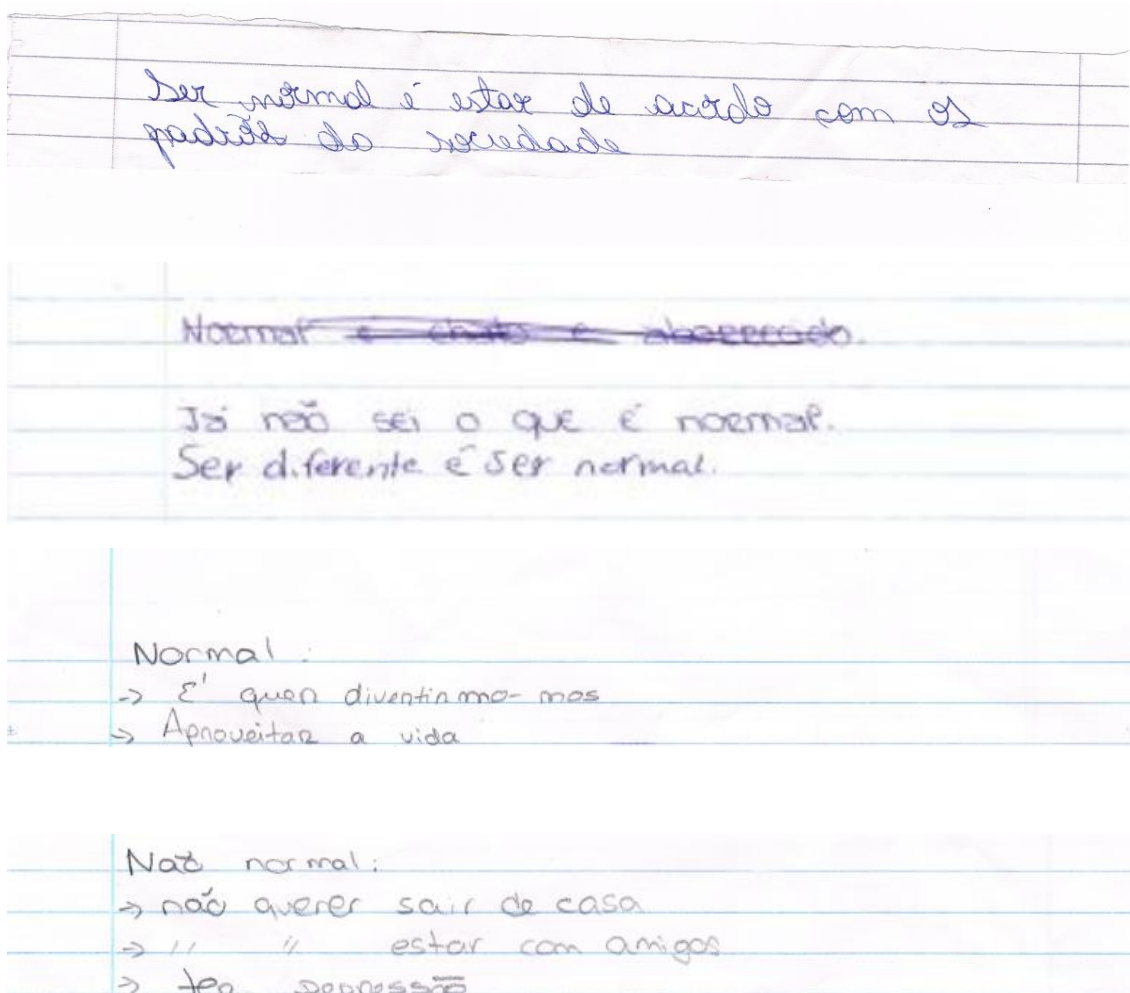 Ser normal é estar de acordo com os
padrões da sociedade
Normal é chato e aborrecido.
Já não sei o que é normal.
Ser diferente é ser normal.
Normal:
-> É querer divertirmo-mos
-> Aproveitar a vida
Não normal:
-> não querer sair de casa
-> // // estar com amigos
-> ter depressão